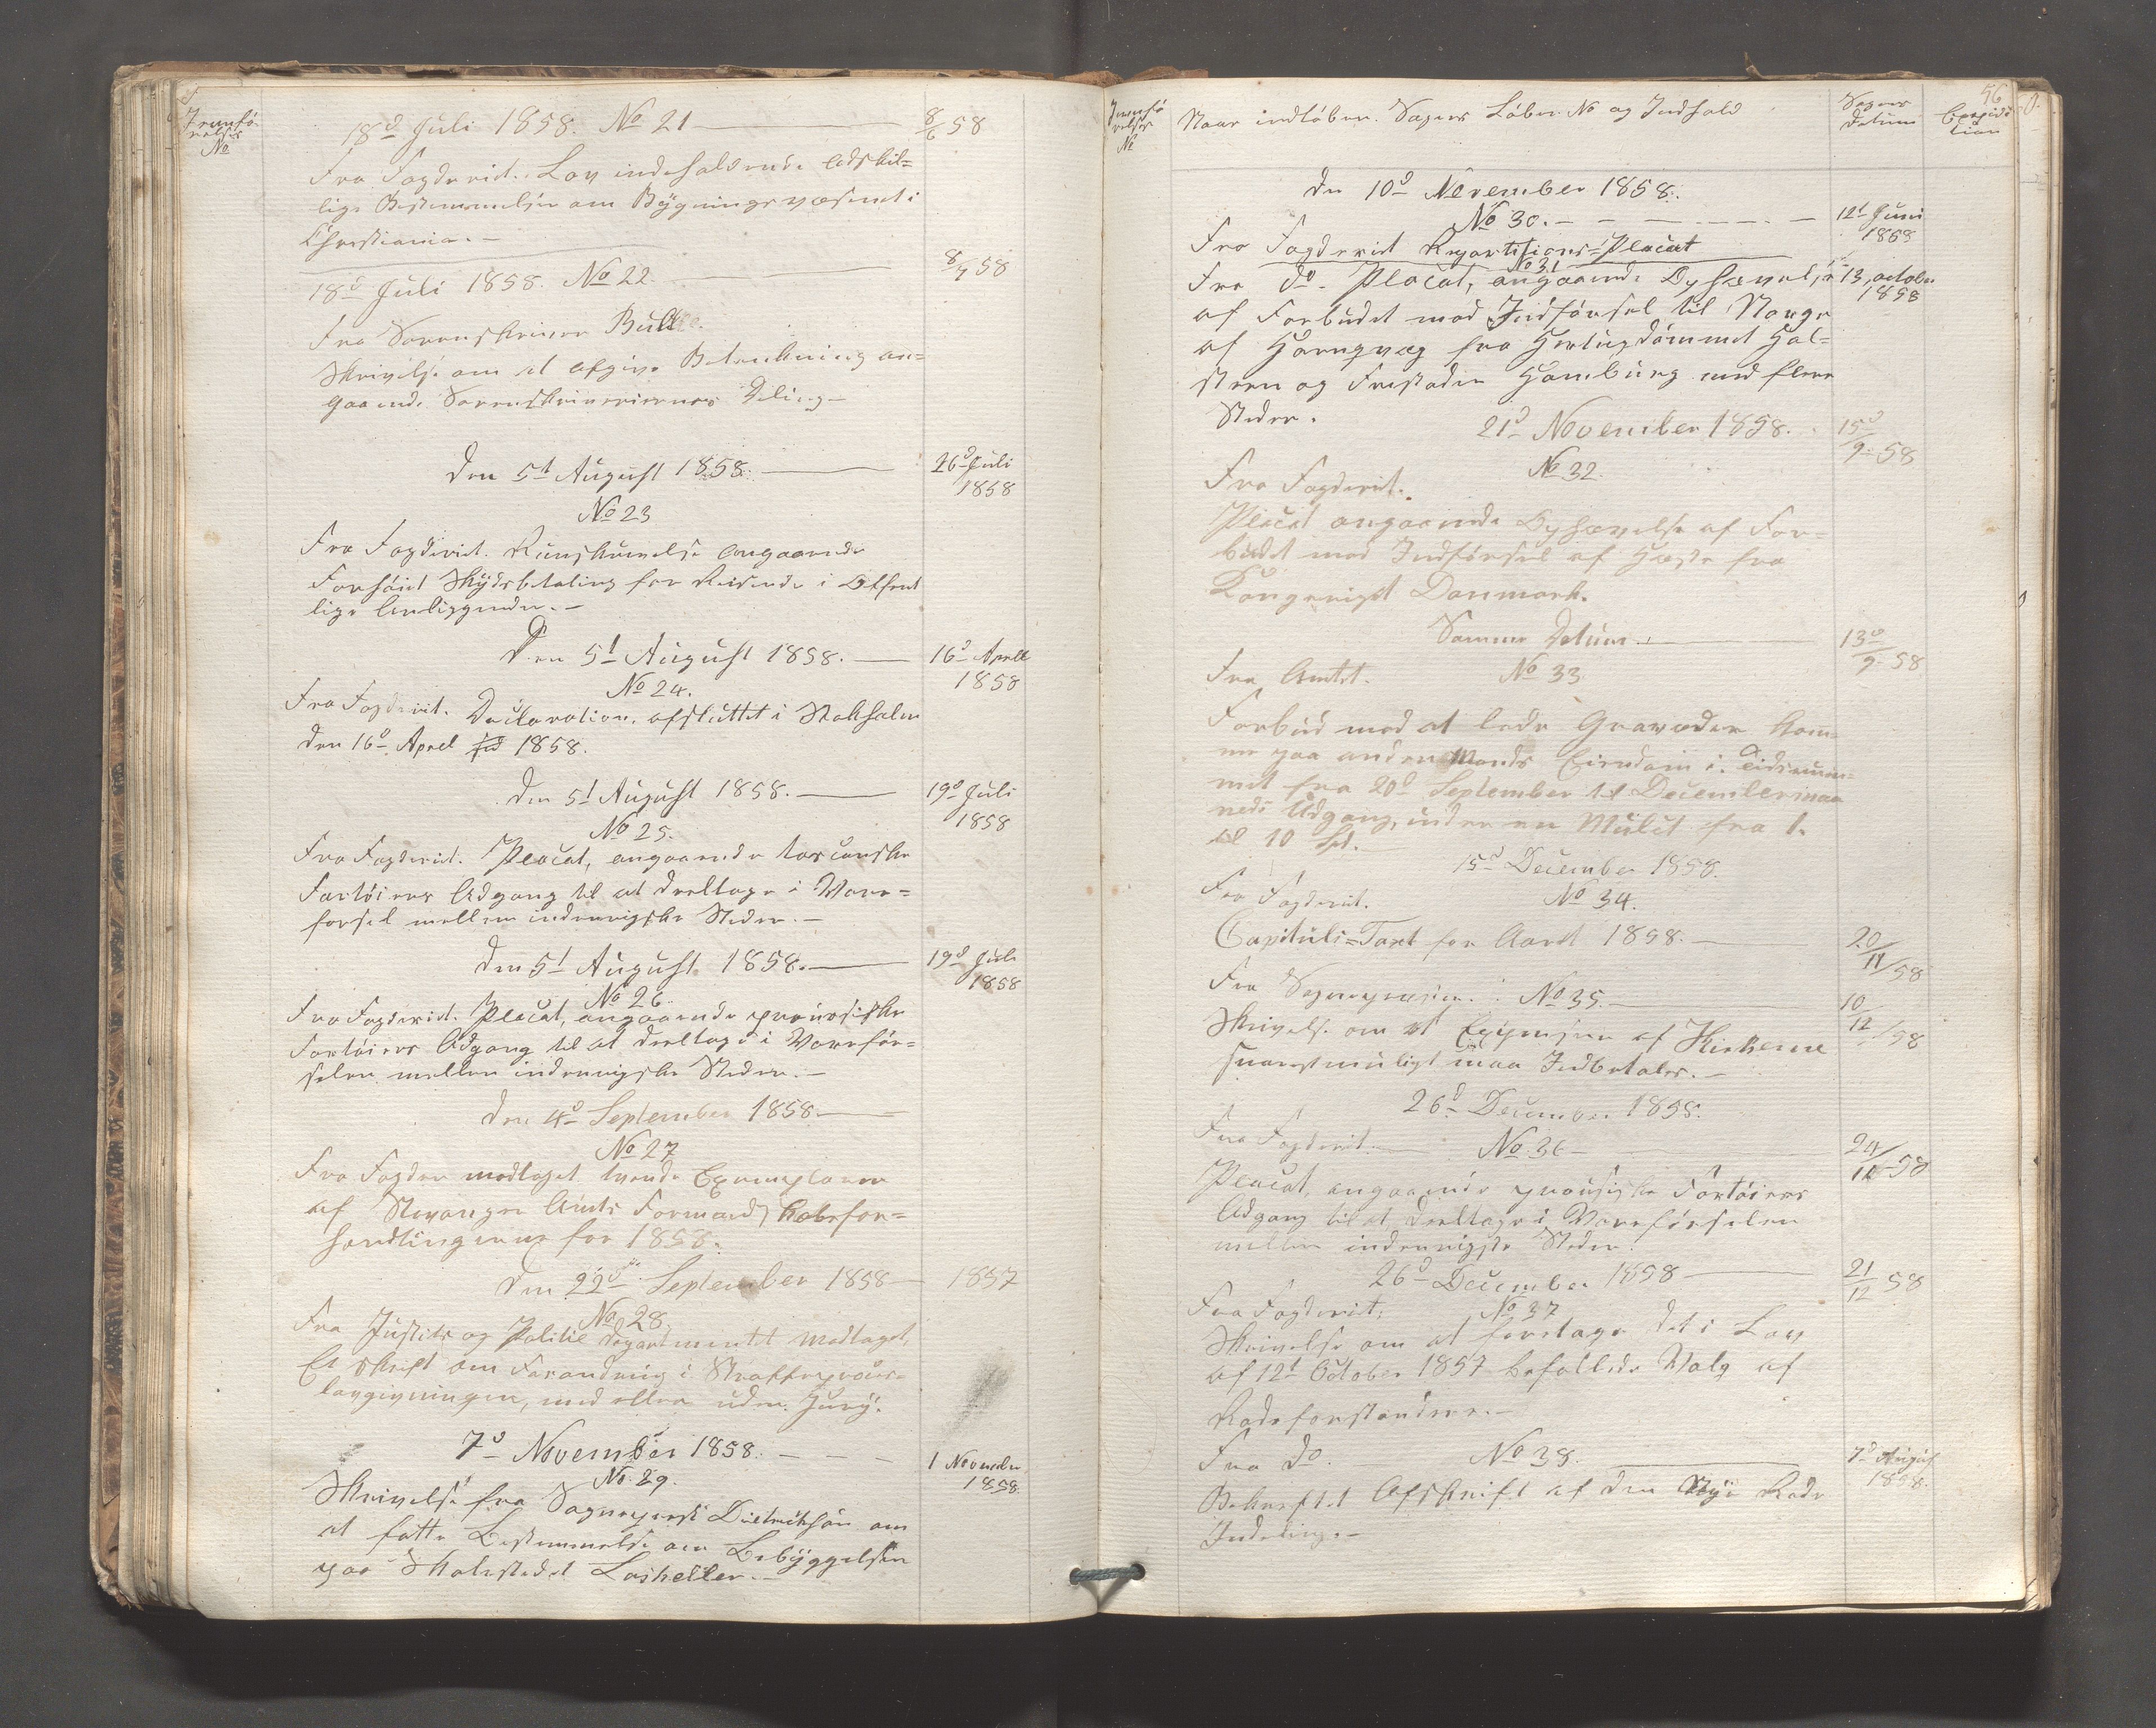 Jevnfö-
relses
No
18d Juli 1858. No 21
8/6 58
Fra Fogderiet. Lov indeholdende Adskil=
lige Bestemmelser om Bygningsvæsenet i
Christiania.-
18d Juli 1858. No 22
8/7 58
Fra Sorenskriver Bull
Skrivelse om at afgive Betænkning an=
gaaende Sorenskriveriernes Deling-
Den 5t August 1858.
26d Juli
1858
No 23
Fra Fogderiet. Kundgjørelse angaaende
Forhöiet Skydsbetaling for Reisende i Offent
lige Anliggender.-
Den 5t August 1858.
16d April
1858
No 24.
Fra Fogderiet. Declaration, afsluttet i Stokholm
den 16d April 1858.
Den 5t August 1858.
19d Juli
1858
No 25.
Fra Fogderiet. Placat, angaaende toscanske
Fartöiers Adgang til at deeltage i Vare=
forsel mellem indenrigske Steder.-
Den 5t August 1858.
19d Juli
1858
No 26.
Fra Fogderiet. Placat, angaaende preussiske
Fartöiers Adgang til at deeltage i Vareför=
selen mellem indenrigske Steder.-
Den 4d September 1858.
No 27
Fra Fogden modtaget tvende Exemplarer
af Stavanger Amts Formandskabsfor=
handlingerne for 1858.
Den 22d September 1858
1857
No 28.
Fra Justits og Politie Departementet modtaget,
Et Skrift om Forandring i Strafferröris-
lovgivningen, med eller uden Jury.
7d November 1858.
1 November
1858.
No. 29.
Skrivelse fra Sogneprest Dietrichson om
at fatte Bestemmelse om Bebyggelsen
paa Skolestedet Lasheller.-
56
Jevnfö
relses
No
Naar indlöben. Sagens Löbe No og Indhold
Sagens
Datum
Expedi
tion
Den 10d November 1858.
No 30.
12t Juni
1858
Fra Fogderiet Repartitions=Placat
No 31
Fra do. Placat, angaaende Ophævelse
13 october
1858
af Forbudet mod Indförsel til Norge
af Hornqvæg fra Hertugdömmet Hol=
steen og Fristaden Hamburg med flere
Steder.
21d November 1858.
15d/9 58
No 32.
Fra Fogderiet.
Placat angaaende Ophævelse af For=
budet mod Indförsel af Heste fra
Kongeriget Danmark.
Samme Datum.
13d/9 58
Fra Amtet. No 33
Forbud mod at lede Grævøder kom=
me paa anden Mands Eiendom i Tidsrum=
met fra 20d September til Decembermaa
neds Udgang, under en Mulct fra 1.
til 10 Spd.
15d December 1858.
Fra Fogderiet. No 34.
Capituls=Taxt for Aaret 1858.
20/11/58
Fra Sognepresten. No 35.
10/12/58
Skrivelse om at Expensen af Kirkerne
snarestmuligt maa Indbetales.-
26d December 1858.
Fra Fogderiet. No. 36
24/11 58
Placat, angaaende preussiske Fartöiers
Adgang til at deeltage i Vareförselen
mellem indenrigske Steder.
26d December 1858
21/12 58
Fra Fogderiet. No 37
Skrivelse om at foretage det i Lov
af 12t October 1857 befallede Valg af
Rodeforstandere.-
Fra do. No 38.
7d August
1858.
Bekræftet Afskrift af den Nye Rode
Indeling.-